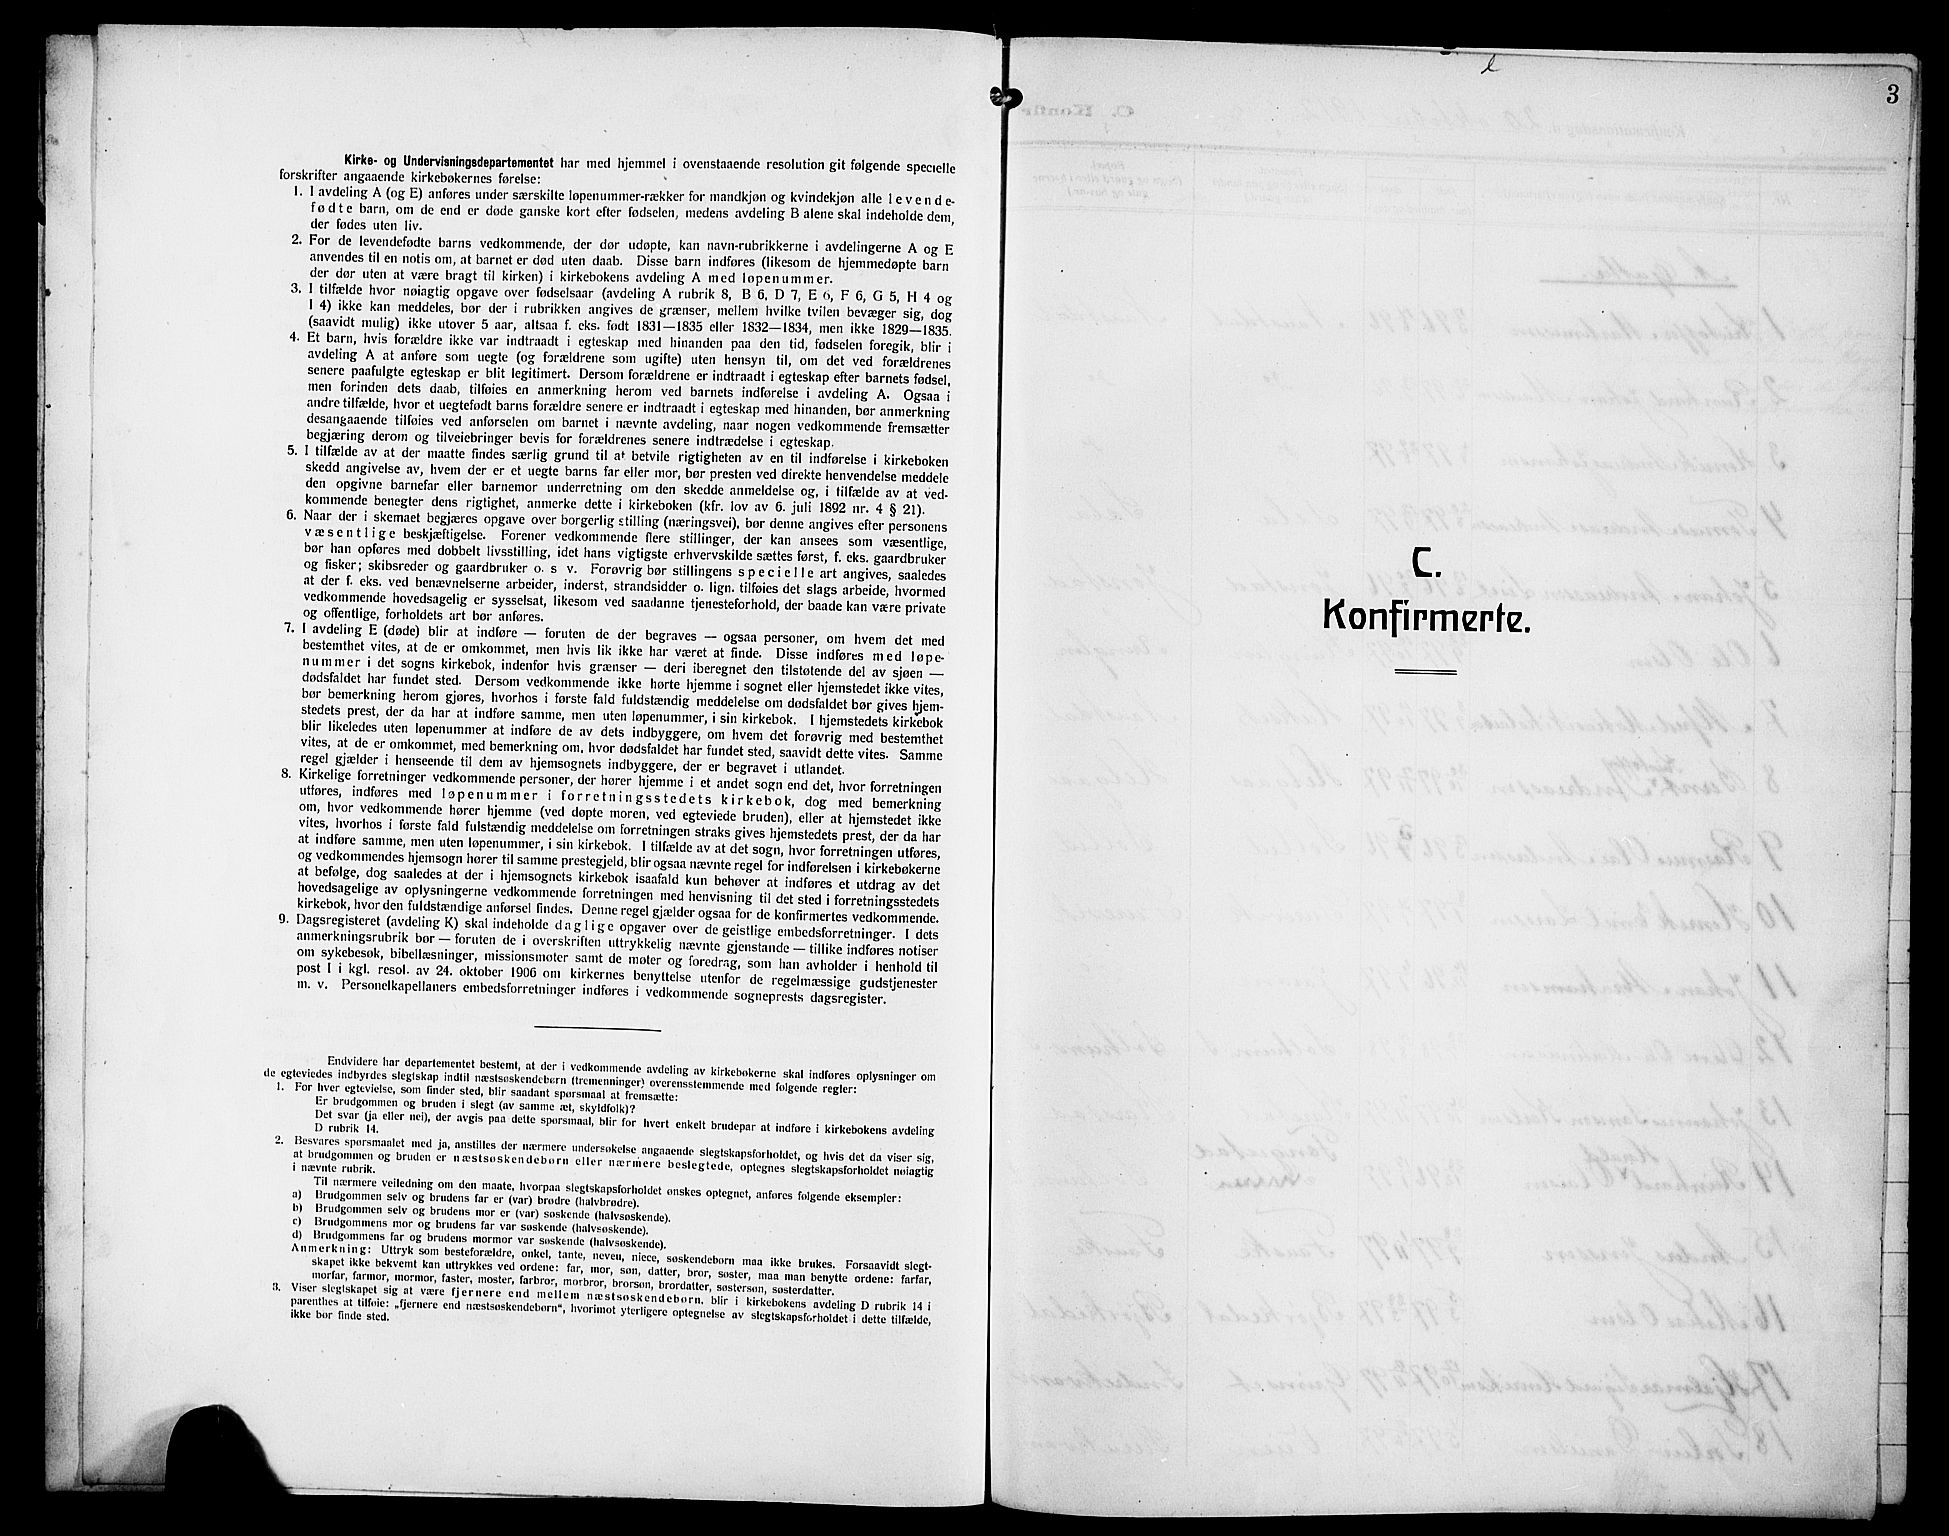 Kirke- og Undervisningsdepartementet har med hjemmel i ovenstaaende resolution git følgende specielle
forskrifter angaaende kirkebøkernes førelse:
1. I avdeling A (og E) anføres under særskilte løpenummer-rækker for mandkjøn og kvindekjøn alle levende-
fødte barn, om de end er døde ganske kort efter fødselen, medens avdeling B alene skal indeholde dem,
der fødes uten liv.
2. For de levendefødte barns vedkommende, der dør udøpte, kan navn-rubrikkerne i avdelingerne A og E
anvendes til en notis om, at barnet er død uten daab. Disse barn indføres (likesom de hjemmedøpte barn
der dør uten at være bragt til kirken) i kirkebokens avdeling A med løpenummer.
3. I tilfælde hvor nøiagtig opgave over fødselsaar (avdeling A rubrik 8, B 6, D 7, E 6, F 6, G 5, H 4 og
I 4) ikke kan meddeles, bør der i rubrikken angives de grænser, mellem hvilke tvilen bevæger sig, dog
(saavidt mulig) ikke utover 5 aar, altsaa f. eks. født 1831—1835 eller 1832—1834, men ikke 1829—1835.
4. Et barn, hvis forældre ikke var indtraadt i egteskap med hinanden paa den tid, fødselen foregik, blir i
avdeling A at anføre som uegte (og forældrene som ugifte) uten hensyn til, om det ved forældrenes
senere paafulgte egteskap er blit legitimert. Dersom forældrene er indtraadt i egteskap efter barnets fødsel,
men forinden dets daab, tilføies en anmerkning herom ved barnets indførelse i avdeling A. Ogsaa i
andre tilfælde, hvor et uegtefødt barns forældre senere er indtraadt i egteskap med hinanden, bør anmerkning
desangaaende tilføies ved anførselen om barnet i nævnte avdeling, naar nogen vedkommende fremsætter
begjæring derom og tilveiebringer bevis for forældrenes senere indtrædelse i egteskap.
5. I tilfælde av at der maatte findes særlig grund til at betvile rigtigheten av en til indførelse i kirkeboken
skedd angivelse av, hvem der er et uegte barns far eller mor, bør presten ved direkte henvendelse meddele
den opgivne barnefar eller barnemor underretning om den skedde anmeldelse og, i tilfælde av at ved-
kommende benegter dens rigtighet, anmerke dette i kirkeboken (kfr. lov av 6. juli 1892 nr. 4 § 21).
6. Naar der i skemaet begjæres opgave over borgerlig stilling (næringsvei), bør denne angives efter personens
væsentlige beskjæftigelse. Forener vedkommende flere stillinger, der kan ansees som væsentlige,
bør han opføres med dobbelt livsstilling, idet hans vigtigste erhvervskilde sættes først, f. eks. gaardbruker
og fisker; skibsreder og gaardbruker o. s v. Forøvrig bør stillingens specielle art angives, saaledes
at der f. eks. ved benævnelserne arbeider, inderst, strandsidder o. lign. tilføies det slags arbeide, hvormed
vedkommende hovedsagelig er sysselsat, likesom ved saadanne tjenesteforhold, der baade kan være private
og offentlige, forholdets art bør anføres.
7. I avdeling E (døde) blir at indføre — foruten de der begraves — ogsaa personer, om hvem det med
bestemthet vites, at de er omkommet, men hvis lik ikke har været at finde. Disse indføres med løpe-
nummer i det sogns kirkebok, indenfor hvis grænser — deri iberegnet den tilstøtende del av sjøen —
dødsfaldet har fundet sted. Dersom vedkommende ikke hørte hjemme i sognet eller hjemstedet ikke vites,
bør bemerkning herom gjøres, hvorhos i første fald fuldstændig meddelelse om dødsfaldet bør gives hjem-
stedets prest, der da har at indføre samme, men uten løpenummer, i sin kirkebok. I hjemstedets kirkebok
blir likeledes uten løpenummer at indføre de av dets indbyggere, om hvem det forøvrig med bestemthet
vites, at de er omkommet, med bemerkning om, hvor dødsfaldet har fundet sted, saavidt dette vites. Samme
regel gjælder i henseende til dem av hjemsognets indbyggere, der er begravet i utlandet.
8. Kirkelige forretninger vedkommende personer, der hører hjemme i et andet sogn end det, hvor forretningen
utføres, indføres med løpenummer i forretningsstedets kirkebok, dog med bemerkning
om, hvor vedkommende hører hjemme (ved døpte moren, ved egteviede bruden), eller at hjemstedet ikke
vites, hvorhos i første fald fulstændig meddelelse om forretningen straks gives hjemstedets prest, der da har
at indføre samme, men uten løpenummer, i sin kirkebok. I tilfælde av at det sogn, hvor forretningen utføres,
og vedkommendes hjemsogn hører til samme prestegjeld, blir ogsaa nævnte regel for indførelsen i kirkebøkerne
at befølge, dog saaledes at der i hjemsognets kirkebok isaafald kun behøver at indføres et utdrag av det
hovedsagelige av oplysningerne vedkommende forretningen med henvisning til det sted i forretningsstedets
kirkebok, hvor den fuldstændige anførsel findes. Denne regel gjælder ogsaa for de konfirmertes vedkommende.
9. Dagsregisteret (avdeling K) skal indeholde daglige opgaver over de geistlige embedsforretninger. I dets
anmerkningsrubrik bør — foruten de i overskriften uttrykkelig nævnte gjenstande — tillike indføres notiser
om sykebesøk, bibellæsninger, missionsmøter samt de møter og foredrag, som han avholder i henhold til
post I i kgl. resol. av 24. oktober 1906 om kirkernes benyttelse utenfor de regelmæssige gudstjenester
m. v. Personelkapellaners embedsforretninger indføres i vedkommende sogneprests dagsregister.
Endvidere har departementet bestemt, at der i vedkommende avdeling av kirkebøkerne skal indføres oplysninger om
de egteviedes indbyrdes slegtskap indtil næstsøskendebørn (tremenninger) overensstemmende med følgende regler:
1. For hver egtevielse, som finder sted, blir saadant spørsmaal at fremsætte:
Er brudgommen og bruden i slegt (av samme æt, skyldfolk)?
Det svar (ja eller nei), der avgis paa dette spørsmaal, blir for hvert enkelt brudepar at indføre i kirkebokens avdeling
D rubrik 14.
2. Besvares spørsmaalet med ja, anstilles der nærmere undersøkelse angaaende slegtskapsforholdet, og hvis det da viser sig,
at brudgommen og bruden er næstsøskendebørn eller nærmere beslegtede, optegnes slegtskapsforholdet nøiagtig
i nævnte rubrik.
Til nærmere veiledning om den maate, hvorpaa slegtskapsforholdet ønskes optegnet, anføres følgende eksempler:
a) Brudgommen selv og brudens far er (var) brødre (halvbrødre).
b) Brudgommen selv og brudens mor er (var) søskende (halvsøskende).
c) Brudgommens mor og brudens far var søskende (halvsøskende).
d) Brudgommens far og brudens mormor var søskende (halvsøskende).
Anmerkning: Uttryk som besteforældre, onkel, tante, neveu, niece, søskendebørn maa ikke brukes. Forsaavidt slegt-
skapet ikke bekvemt kan uttrykkes ved ordene: far, mor, søn, datter, bror, søster, maa man benytte ordene: farfar,
morfar, farmor, mormor, faster, moster, farbror, morbror, brorsøn, brordatter, søstersøn, søsterdatter.
3. Viser slegtskapet sig at være fjernere end mellem næstsøskendebørn, blir i kirkebokens avdeling D rubrik 14 i
parenthes at tilføie: „fjernere end næstsøskendebørn“, hvorimot yterligere optegnelse av slegtskapsforholdet i dette tilfælde,
ikke bør finde sted.
3
C.
Konfirmerte.